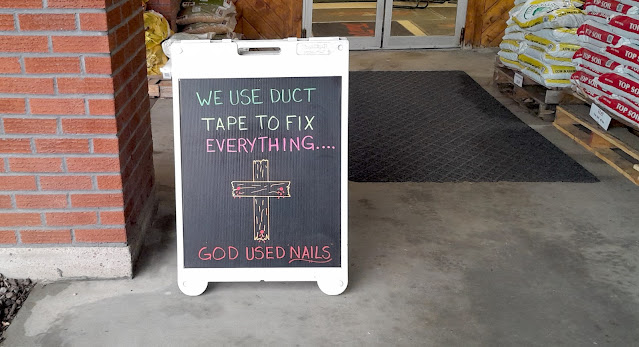 WE USE DUCT
TAPE TO FIX
EVERYTHING....
GOD USED NAILS
TOP SOIL
TOP SOIL
TOP SOIL
TOP SOIL